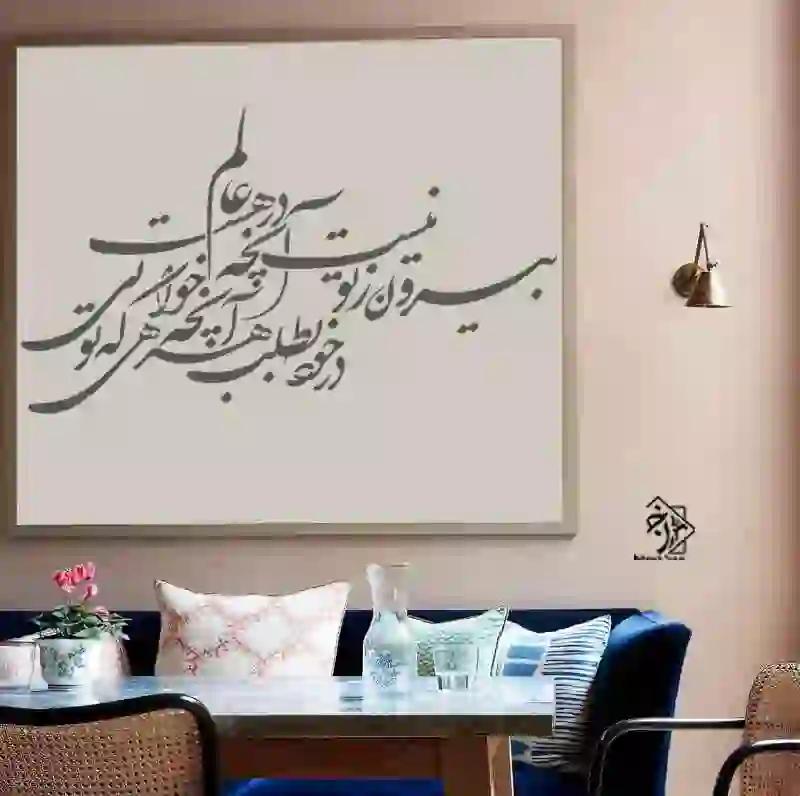 بیرون ز تو نیست آنچه در عالم هست
در خود بطلب هر آنچه خواهی که توئی